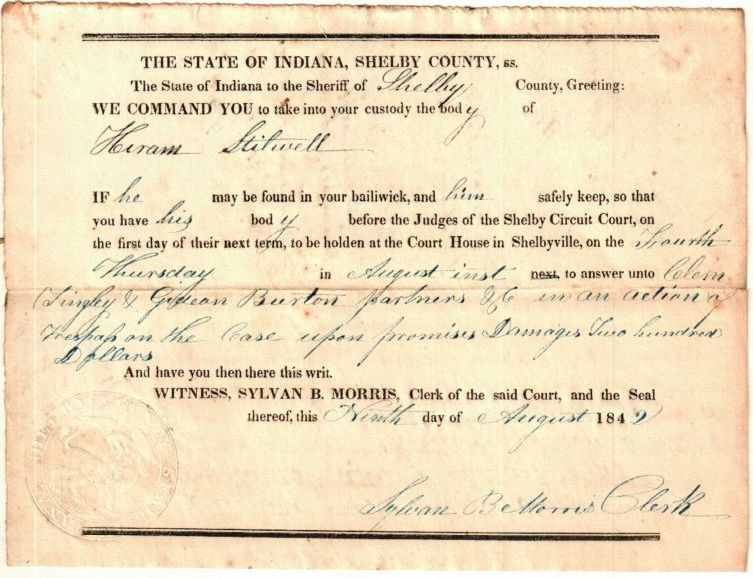 THE STATE OF INDIANA, SHELBY COUNTY, ss.
The State of Indiana to the Sheriff of Shelby County, Greeting:
WE COMMAND YOU to take into your custody the body of
Hiram Stilwell
IF he may be found in your bailiwick, and him safely keep, so that
you have his body before the Judges of the Shelby Circuit Court, on
the first day of their next term, to be holden at the Court House in Shelbyville, on the Fourth
Thursday in August inst next, to answer unto Clem
Tingley & Gideon Burton partners &C in an action of
trespass on the Case upon promises Damages Two hundred
Dollars
And have you then there this writ.
WITNESS, SYLVAN B. MORRIS, Clerk of the said Court, and the Seal
thereof, this Ninth day of August 1842
Sylvan B Morris Clerk